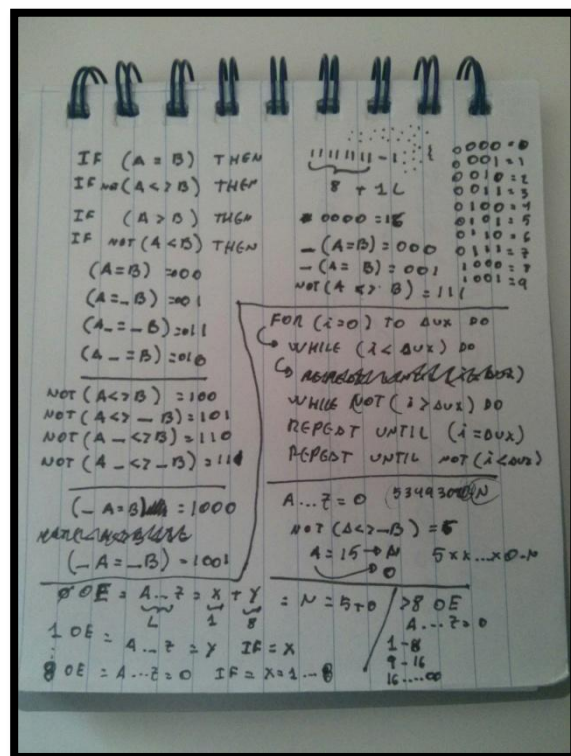 IF (A = B) THEN
IF NOT (A <> B) THEN
IF (A > B) THEN
IF NOT (A < B) THEN
(A = B) = 000
(A = _ B) = 001
(A _ = _ B) = 011
(A _ = B) = 010
NOT (A <> B) = 100
NOT (A <> _ B) = 101
NOT (A _ <> B) = 110
NOT (A _ <> _ B) = 111
(_ A = B) = 1000
(_ A = _ B) = 1001
11111111 - 1
8 + 1 L
0000 = 16
_ (A = B) = 000
_ (A = B) = 001
NOT (A <> B) = 111
0000 = 0
0001 = 1
0010 = 2
0011 = 3
0100 = 4
0101 = 5
0110 = 6
0111 = 7
1000 = 8
1001 = 9
FOR (i = 0) TO AUX DO
WHILE (i < AUX) DO
WHILE NOT (i > AUX) DO
REPEAT UNTIL (i = AUX)
REPEAT UNTIL NOT (i < AUX)
A...Z = 0
N
NOT (A <> _ B) = 5
A = 15 → N
0
5xx...x0-N
0 OE = A...Z = X + Y = N = 5+0
L 1 8
1 OE = A...Z = Y IF = X
8 OE = A...Z = 0 IF = X = 1...8
>8 OE
A...Z = 0
1-8
9-16
16....00